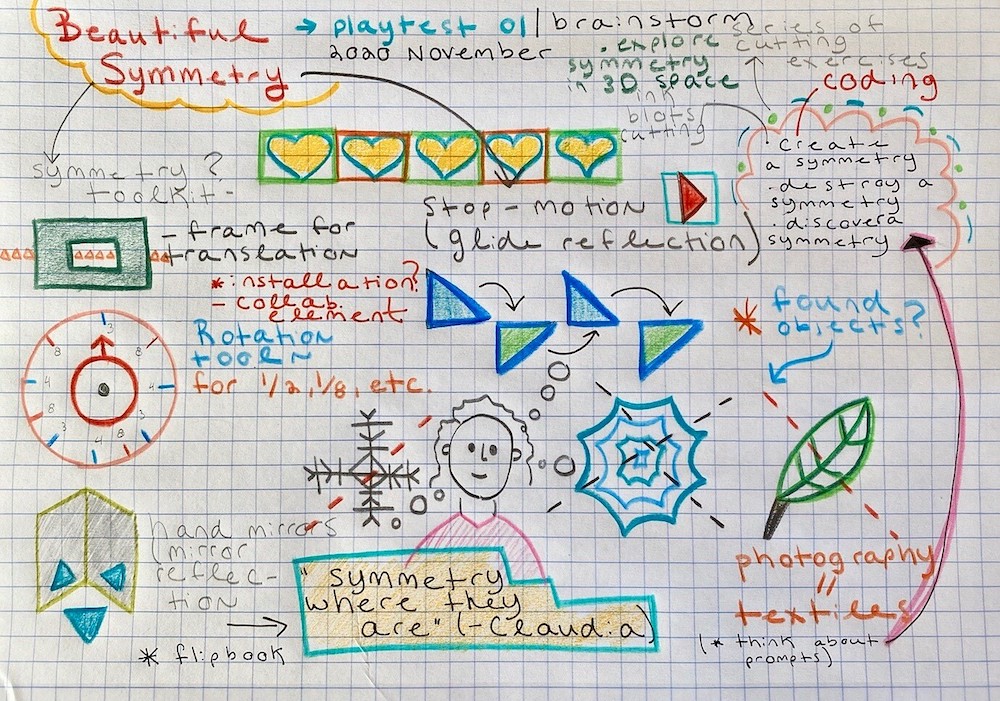 Beautiful
Symmetry
→ playtest 01 / brainstorm
2020 November
• explore
symmetry
in 3D space
series of
cutting
exercises
ink
blots
cutting
coding
• create
a symmetry
• destroy a
symmetry
• discover a
symmetry
symmetry ?
toolkit -
- frame for
translation
* installation?
- collab.
element
stop-motion
(glide reflection)
Rotation
tool ~
for 1/2, 1/8, etc.
3
8
8
4
4
8
3
3
4
8
* found
objects?
hand mirrors
(mirror
reflec-
tion
* flipbook
"symmetry
where they
are" (-Claudia)
photography
"
textiles
(* think about
prompts)